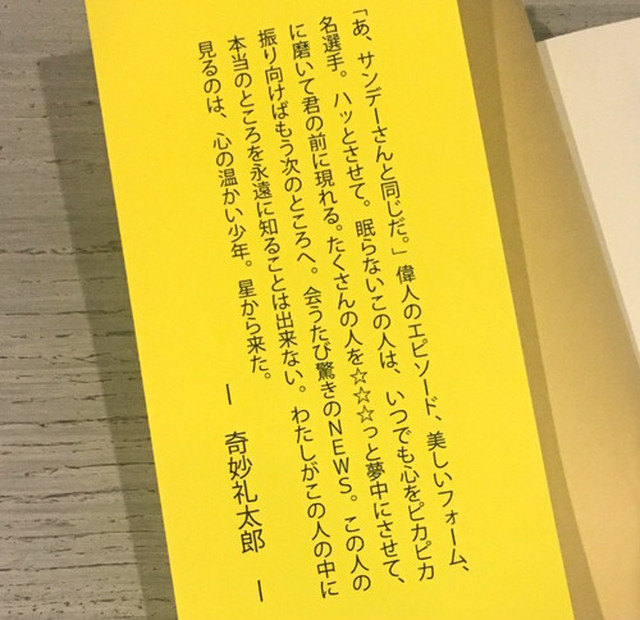 「あ、サンデーさんと同じだ。」偉人のエピソード、美しいフォーム、
名選手。ハッとさせて。眠らないこの人は、いつでも心をピカピカ
に磨いて君の前に現れる。たくさんの人を☆☆☆っと夢中にさせて、
振り向けばもう次のところへ。会うたび驚きのNEWS。この人の
本当のところを永遠に知ることは出来ない。わたしがこの人の中に
見るのは、心の温かい少年。星から来た。
― 奇妙礼太郎 ―